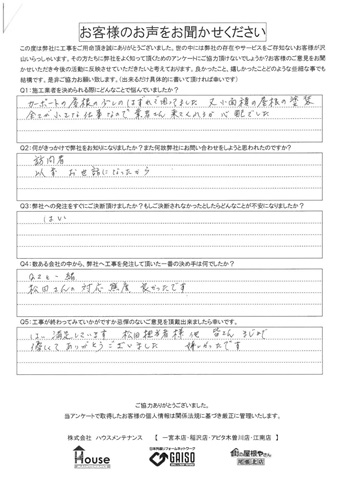 お客様のお声をお聞かせください
この度は弊社に工事をご用命頂き誠にありがとうございました。世の中には弊社の存在やサービスをご存知ないお客様が沢
山いらっしゃいます。その方たちに弊社をよく知って頂くためのアンケートにご協力頂けないでしょうか?お客様のご意見をお聞
かせいただき今後の活動に反映させていただきたいと考えております。良かったこと、嬉しかったことどのような些細な事でも
結構です。是非ご協力お願い致します。(出来るだけ具体的に書いて頂ければ幸いです)
Q1:施工業者を決められる際にどんなことで悩んでいましたか?
カーポートの屋根の はずれて困ってました 又小面積の屋根の塗装
全てが小さな仕事なので業者さん来てくれるか心配でした
Q2:何がきっかけで弊社をお知りになりましたか?また何故弊社にお問い合わせをしようと思われたのですか?
訪問者
以前お世話になったから
Q3:弊社への発注をすぐにご決断頂けましたか?もしご決断されなかったとしたらどんなことが不安になりましたか?
はい
Q4:数ある会社の中から、弊社へ工事を発注して頂いた一番の決め手は何でしたか?
Q2と一緒
松田さんの対応態度良かったです
Q5:工事が終わってみていかがですか忌憚のないご意見を頂戴出来ましたら幸いです。
はい満足しています 松田担当者様他 皆さんまじめで
優しくてありがとうございました 嬉しかったです
ご協力ありがとうございました。
当アンケートで取得したお客様の個人情報は関係法規に基づき厳正に管理いたします。
株式会社 ハウスメンテナンス 【 一宮本店・稲沢店・アピタ木曽川店・江南店 】
House
日本外壁リフォームネットワーク
GAISO
街の屋根やさん